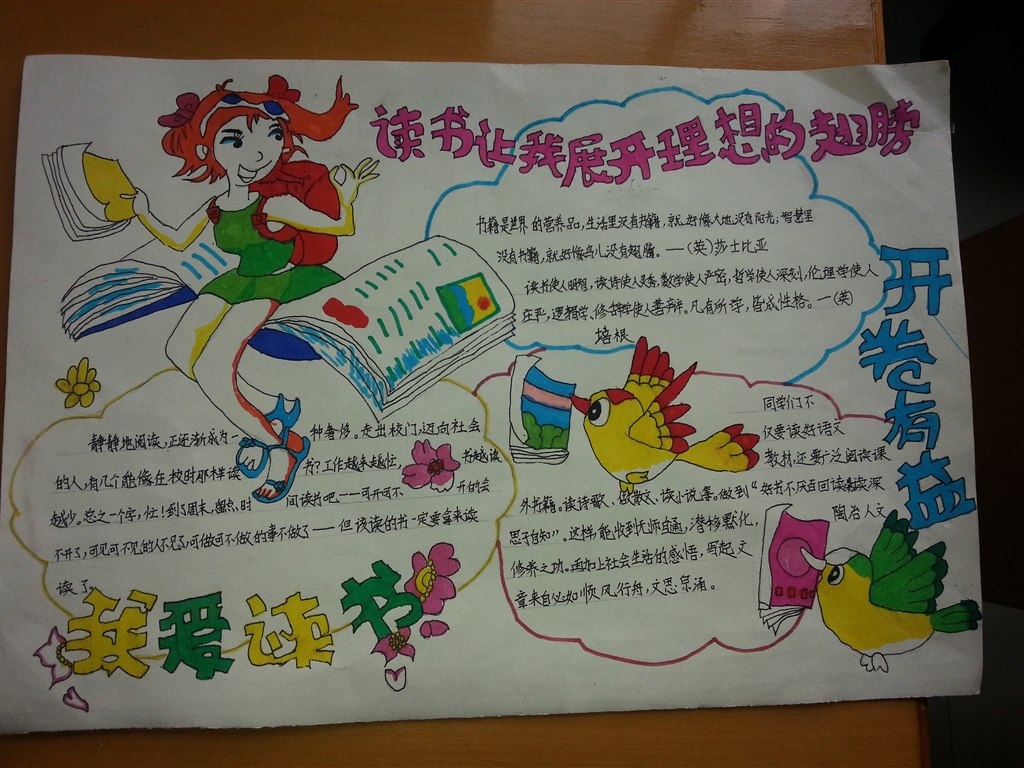 读书让我展开理想的翅膀
书籍是世界的营养品,生活里没有书籍,就好像大地没有阳光;智慧里
没有书籍,就好像鸟儿没有翅膀。——(英)莎士比亚
读书使人明智,读诗使人灵秀,数学使人严密,哲学使人深刻,伦理学使人
庄严,逻辑学、修辞学使人善辩。凡有所学,皆成性格。—(英)
培根
开卷有益
静静地阅读,正逐渐成为一种奢侈。走出校门,迈向社会
的人,有几个能像在校时那样读书?工作越来越忙,书越读
越少。总之一个字,忙!到了周末,留点时间读书吧——可开可不开的会
不开了,可见可不见的人不见了,可做可不做的事不做了——但该读的书一定要拿来读
读了。
我爱读书
同学们不
仅要读好语文
教材,还要广泛阅读课
外书籍。读诗歌、做散文、读小说等。做到“好书不厌百回读,读深
思子自知”。这样,能收到无师自通,潜移默化,陶冶人文
修养之功。再加上社会生活的感悟,写起文
章来自必如顺风行舟,文思泉涌。